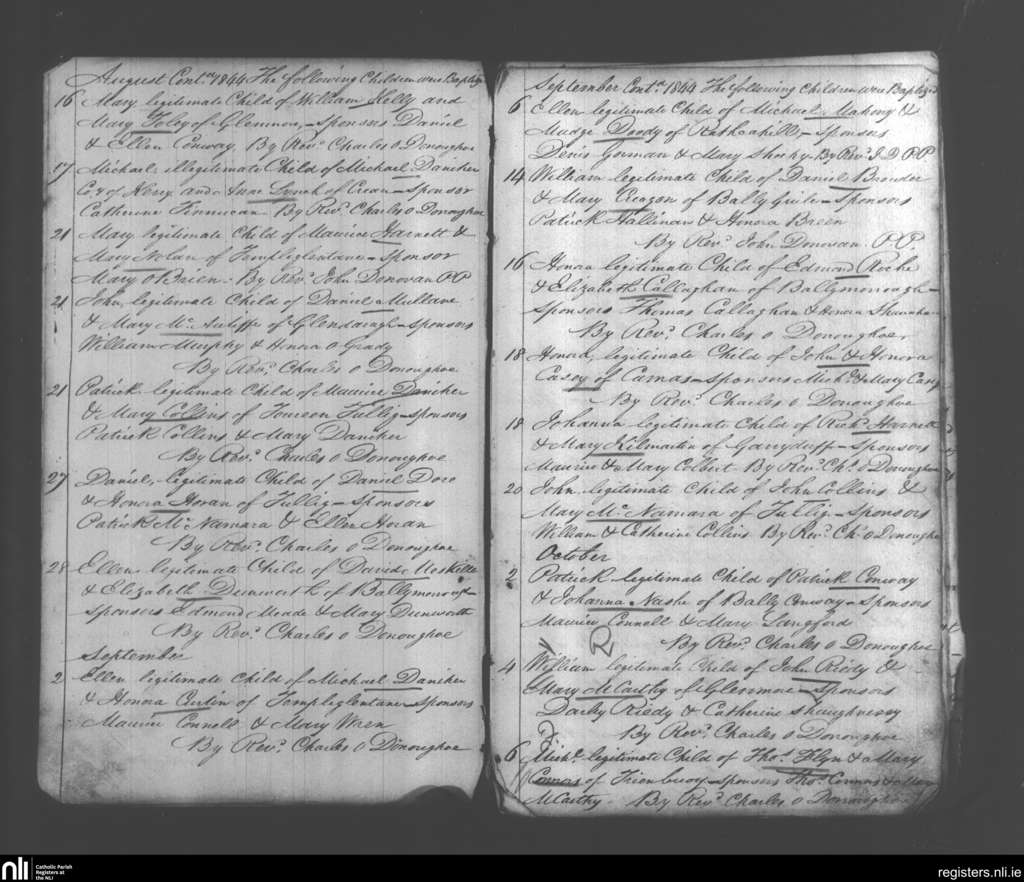 August Contd. 1844 The following Children were Baptized
16 Mary legitimate Child of William Kelly and
Mary Foley of Glenmore - Sponsors Daniel
& Ellen Conway. By Revd. Charles O Donoughoe
17 Michael illegitimate Child of Michael Daniher
Coy of Kerry and Lynch of - Sponsor
Catherine Finnucan By Revd. Charles O Donoughoe
21 Mary legitimate Child of Maurice Harnett &
Mary Nolan of Templeglentane - Sponsor
Mary O Brien - By Revd. John Donovan PP
21 John, legitimate Child of Daniel Mullane
& Mary Mc. Auliffe of - Sponsors
William Murphy & Honora O Grady
By Revd. Charles O Donoughoe
21 Patrick legitimate Child of Maurice Daniher
& Mary Collins of Toureen Tullig - Sponsors
Patrick Collins & Mary Daniher
By Revd. Charles O Donoughoe
27 Daniel, legitimate Child of Daniel Dore
& Honora Horan of Tullig - Sponsors
Patrick Mc. Namara & Ellen Horan
By Revd. Charles O Donoughoe
28 Ellen legitimate Child of David
& Elizabeth Dunworth of
Sponsors Edmond Meade & Mary Dunworth
By Revd. Charles O Donoughoe
September
2 Ellen legitimate Child of Michael Daniher
& Honora Curtin of Templeglentane - Sponsors
Maurice Connell & Mary Wren
By Revd. Charles O Donoughoe
September Contd. 1844 The following Children were Baptized
6 Ellen legitimate Child of Michael Mahony &
Mudge Doody of Rathcahill - Sponsors
Denis Gorman & Mary By Revd. J. D PP
14 William legitimate Child of Daniel Browder
& Mary Creagon of - Sponsors
Patrick Hallinan & Honora Breen
By Revd. John Donovan. PP
16 Honora legitimate Child of Edmond Roche
& Elizabeth Callaghan of -
Sponsors Thomas Callaghan & Honora
By Revd. Charles O Donoughoe
18 Honora, legitimate Child of John & Honora
Casey of Camas - Sponsors Michl. & Mary Casey
By Revd. Charles O Donoughoe
18 Johanna legitimate Child of Richd. Harnett
& Mary Kilmartin of Garryduff - Sponsors
Maurice & Mary Colbert By Revd. Chs. O Donoughoe
20 John legitimate Child of John Collins &
Mary Mc. Namara of Tullig - Sponsors
William & Catherine Collins By Revd. Chs. O Donoughoe
October
2 Patrick legitimate Child of Patrick Conway
& Johanna Nashe of Bally Conway - Sponsors
Maurice Connell & Mary Langford
By Revd. Charles O Donoughoe
4 William legitimate Child of John Riedy &
Mary McCarthy of Glenmore - Sponsors
Darby Riedy & Catherine Shaughnessy
By Revd. Charles O Donoughoe
6 Michl. legitimate Child of Thos. Flyn & Mary
Connors of - Sponsors Thos. Connors & Mary
McCarthy - By Revd. Charles O Donoughoe
nli Catholic Parish
Registers at
the NLI
registers.nli.ie